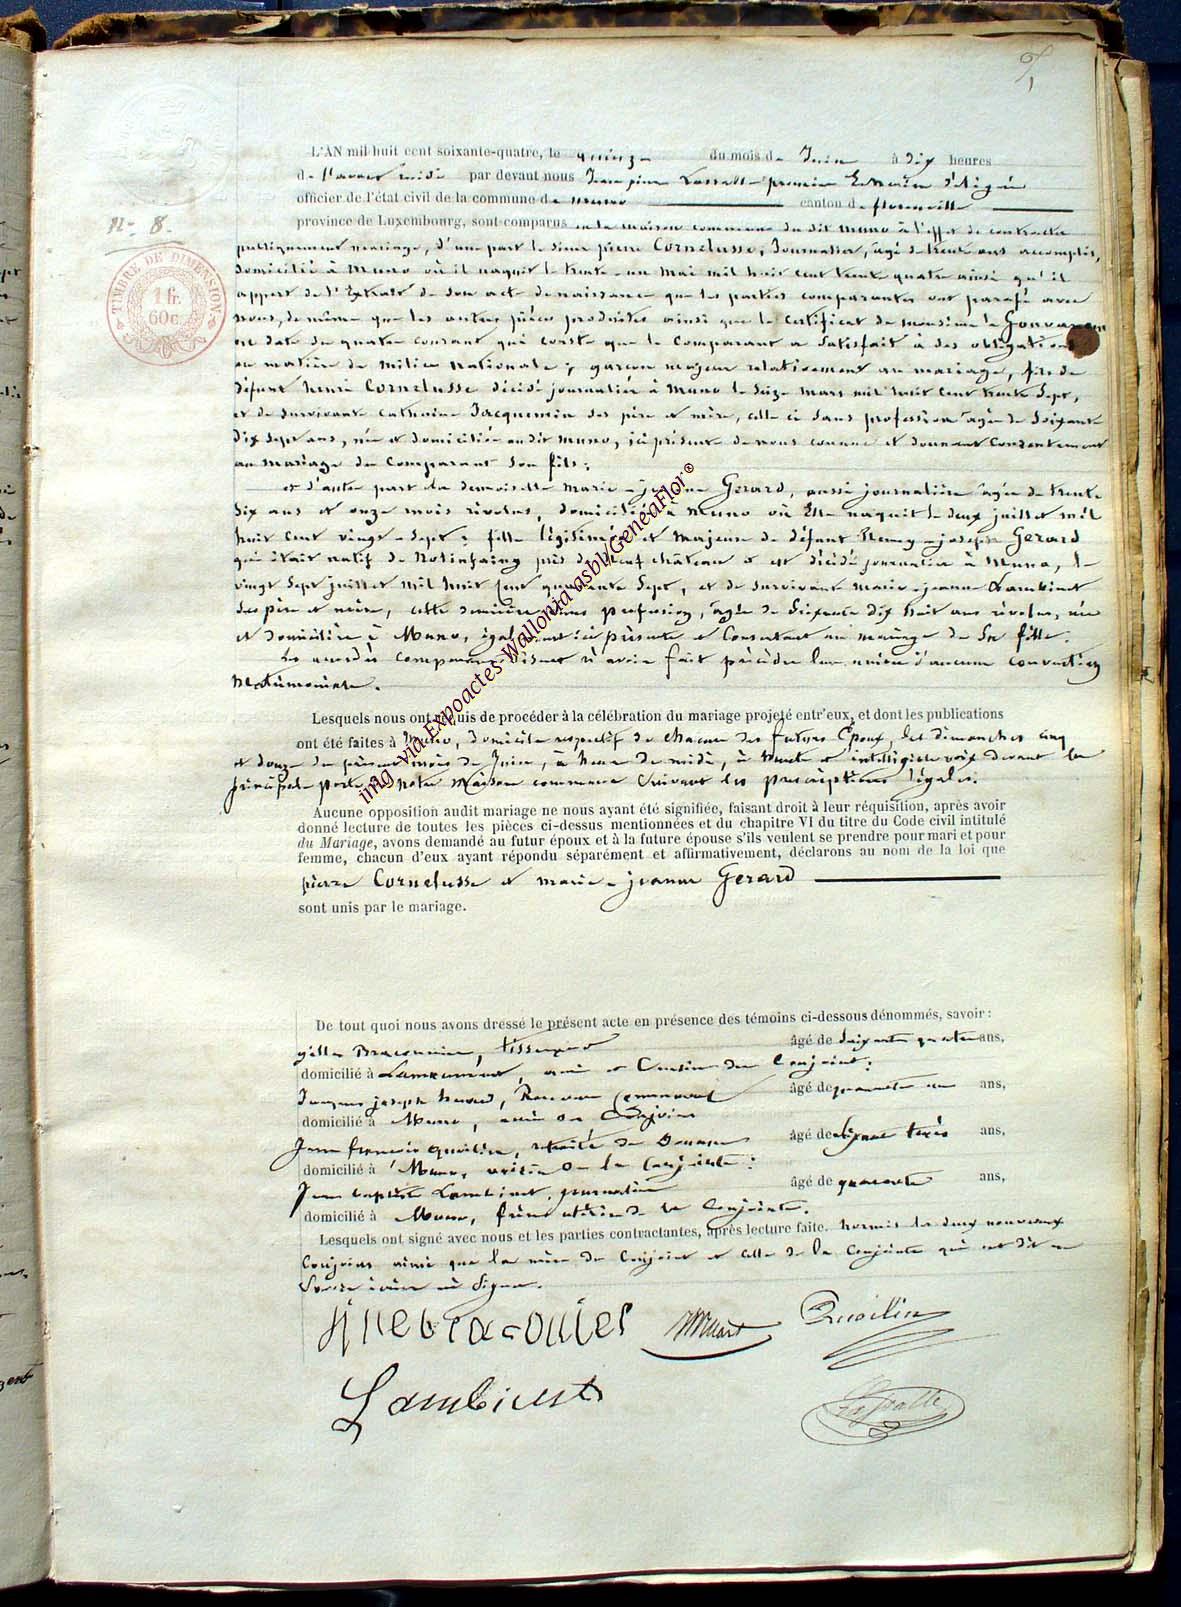 N° 8.
TIMBRE DE DIMENSION
1 fr.
60c.
L'AN mil huit cent soixante-quatre, le quinze du mois de Juin à dix heures
de l'avant midi par devant nous Jean pierre Lassalle premier Echevin délégué
officier de l'état civil de la commune de Muno canton de florenville
province de Luxembourg, sont comparus en la maison commune du dit Muno à l'effet de contracter
publiquement mariage, d'une part le sieur pierre Cornelusse, Journalier, âgé de trente ans accomplis,
domicilié à Muno où il naquit le trente un Mai mil huit cent trente quatre ainsi qu'il
appert de l'Extrait de son acte de naissance que les parties comparantes ont parafé avec
nous, de même que les autres pièces produites ainsi que le certificat de monsieur le Gouverneur
en date du quatre courant qui conste que le Comparant a satisfait à ses obligations
en matière de milice nationale; garçon majeur relativement au mariage, fils de
défunt henri Cornelusse décédé journalier à Muno le seize mars mil huit cent trente sept,
et de survivante catherine Jacquemin ses père et mère, celle ci sans profession âgée de soixante
dix sept ans, née et domiciliée audit Muno, ici présente de nous connue et donnant consentement
au mariage du Comparant son fils;
et d'autre part la demoiselle Marie-jeanne Gerard, aussi journalière âgée de trente
six ans et onze mois révolus, domiciliée à Muno où Elle naquit le deux juillet mil
huit cent vingt-sept; fille légitime et majeure de défunt Remy-joseph Gerard
qui était natif de Rotinhaing près de Neufchâteau et est décédé journalier à Muno, le
vingt sept juillet mil huit cent quarante sept, et de survivante marie-jeanne Lambinet
ses père et mère, cette dernière sans profession, âgée de soixante dix huit ans révolus, née
et domiciliée à Muno, également ici présente et Consentant au mariage de sa fille.
Les accordés comparants disent n'avoir fait précéder leur union d'aucune convention
matrimoniale.
Lesquels nous ont requis de procéder à la célébration du mariage projeté entr'eux, et dont les publications
ont été faites à Muno, domicile respectif de chacun des futurs Epoux, les dimanches cinq
et douze du présent mois de Juin, à heure de midi, à haute et intelligible voix devant la
principale porte de notre Maison commune suivant les prescriptions légales.
Aucune opposition audit mariage ne nous ayant été signifiée, faisant droit à leur réquisition, après avoir
donné lecture de toutes les pièces ci-dessus mentionnées et du chapitre VI du titre du Code civil intitulé
du Mariage, avons demandé au futur époux et à la future épouse s'ils veulent se prendre pour mari et pour
femme, chacun d'eux ayant répondu séparément et affirmativement, déclarons au nom de la loi que
pierre Cornelusse et marie-jeanne Gerard
sont unis par le mariage.
De tout quoi nous avons dressé le présent acte en présence des témoins ci-dessous dénommés, savoir:
gilles Braconnier, tisserand âgé de soixante quatre ans,
domicilié à ami et Cousin du Conjoint;
joseph âgé de quarante un ans,
domicilié à Muno, ami du Conjoint
Jean françois Quoilin, retraité de Douane âgé de soixante trois ans,
domicilié à Muno, voisin de la Conjointe;
Jean baptiste Lambinet, journalier âgé de quarante ans,
domicilié à Muno, frère utérin de la Conjointe.
Lesquels ont signé avec nous et les parties contractantes, après lecture faite. hormis les deux nouveaux
Conjoints ainsi que la mère du Conjoint et celle de la Conjointe qui ont dit ne
savoir écrire ni signer.
Quoilin
Lambinet
Lassalle
img via Expoactes-Wallonia asbl/GeneaFlor®